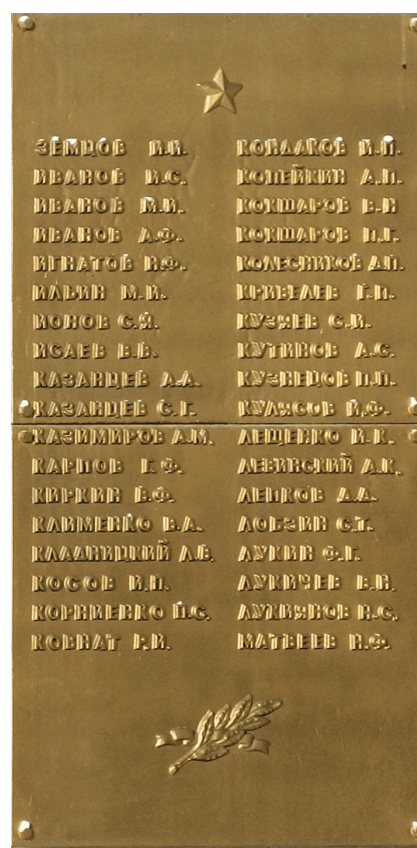 ЗЕМЦОВ И.И.
ИВАНОВ И.С.
ИВАНОВ М.И.
ИВАНОВ А.Ф.
ИГНАТОВ И.Ф.
ИЛЬИН М.И.
ИОНОВ С.Я.
ИСАЕВ В.В.
КАЗАНЦЕВ А.А.
КАЗАНЦЕВ С.Г.
КАЗИМИРОВ А.М.
КАРПОВ Г.Ф.
КИРКИН В.Ф.
КЛИМЕНКО В.А.
КЛАДНИЦКИЙ Л.В.
КОСОВ И.П.
КОРНИЕНКО П.С.
КОВНАТ Р.И.
КОНДАКОВ И.П.
КОПЕЙКИН А.П.
КОКШАРОВ В.И
КОКШАРОВ П.Г.
КОЛЕСНИКОВ Д.П.
КРИВЕЛЕВ Г.П.
КУЗЯЕВ С.И.
КУТИНОВ А.С.
КУЗНЕЦОВ П.П.
КУЛЯСОВ И.Ф.
ЛЕЩЕНКО И.К.
ЛЕВИНСКИЙ А.К.
ЛЕПКОВ Д.Д.
ЛОБЗИН С.Т.
ЛУКИН Ф.Г.
ЛУКИЧЕВ В.И.
ЛУКИЯНОВ Н.С.
МАТВЕЕВ Н.Ф.